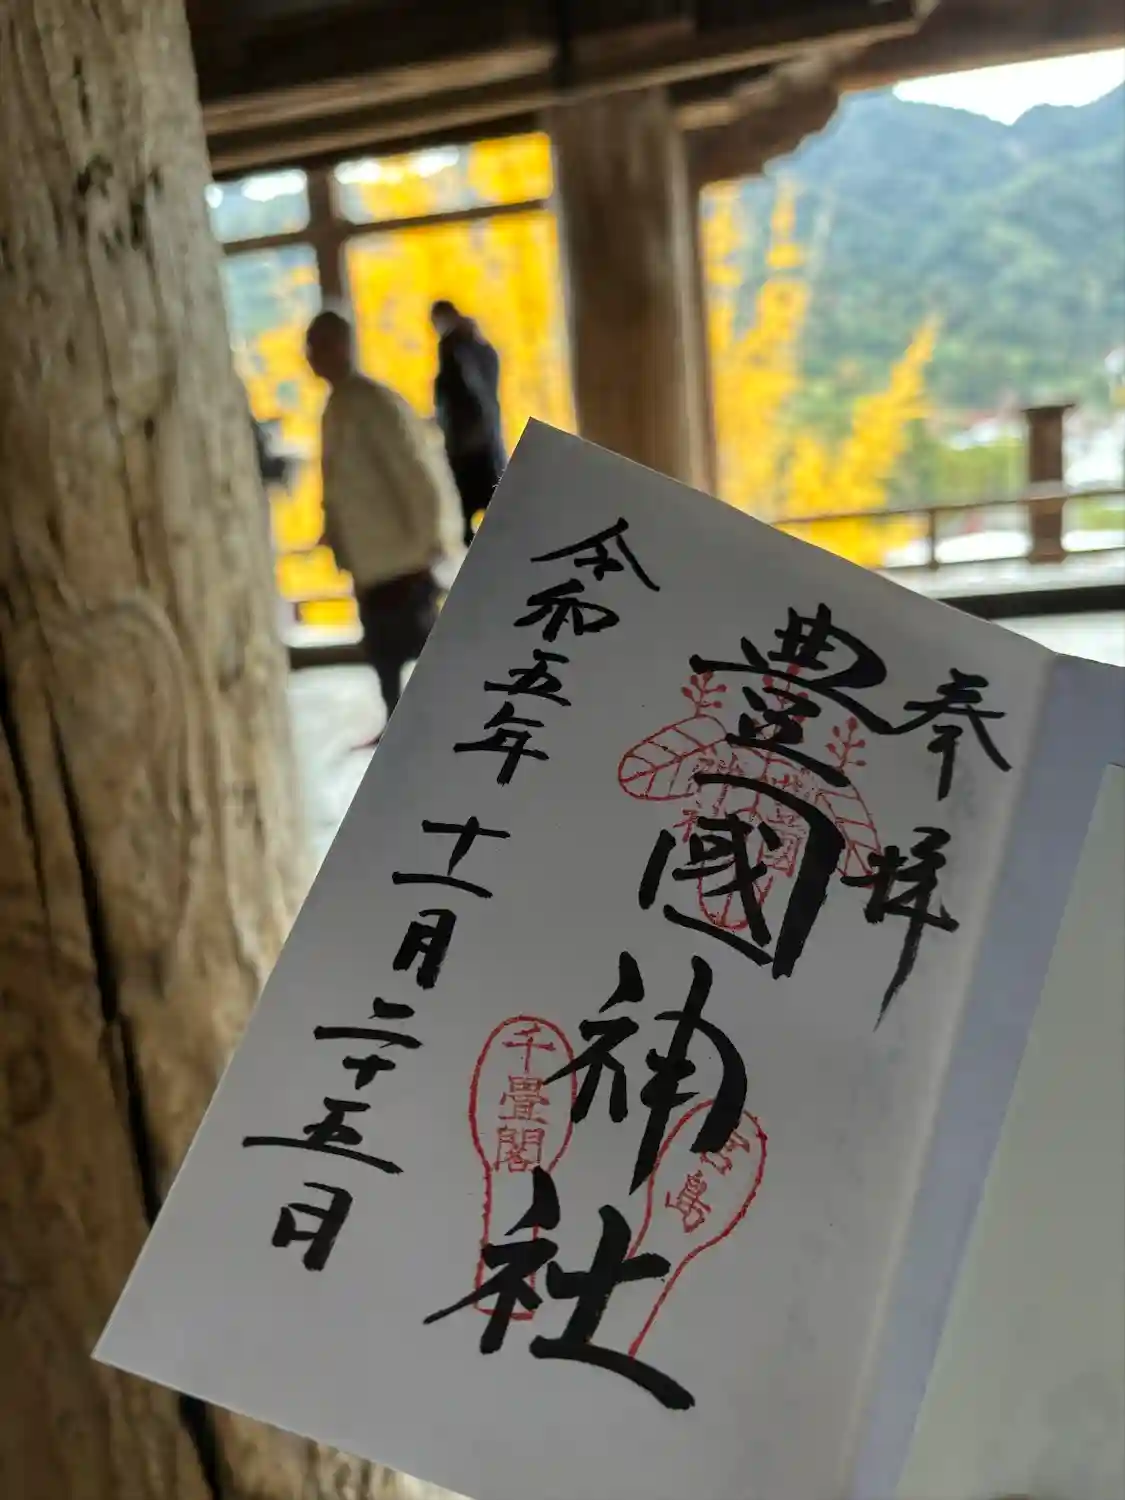 奉拝
豊國神社
令和五年十一月二十五日
千畳閣
宮島